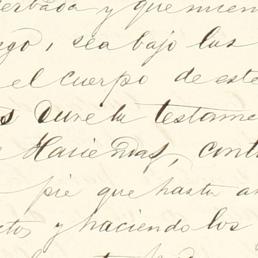 y que mien
sea bajo las
el cuerpo de este
dure la testame
Haciendas, cont
pie que hasta
y haciendo los